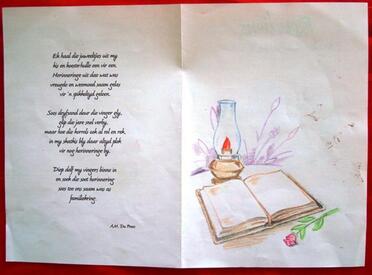 Ek haal die juweeltjies uit my
kis en koester hulle een vir een.
Herinneringe uit das wat was
vreugde en weemoed saam gelees
vir 'n spikkeltyd geleen.
Soos dryfsand deur die vinger gly,
glip die jare snel verby,
maar hoe die korrels ook al rol en rek,
in my sketsboek bly daar altyd plek
vir nog herinneringe by.
Diep dolf my vingers binne in
en soek die soet herinnering
soos toe ons saam was as
familiekring.
A.M. Du Preez